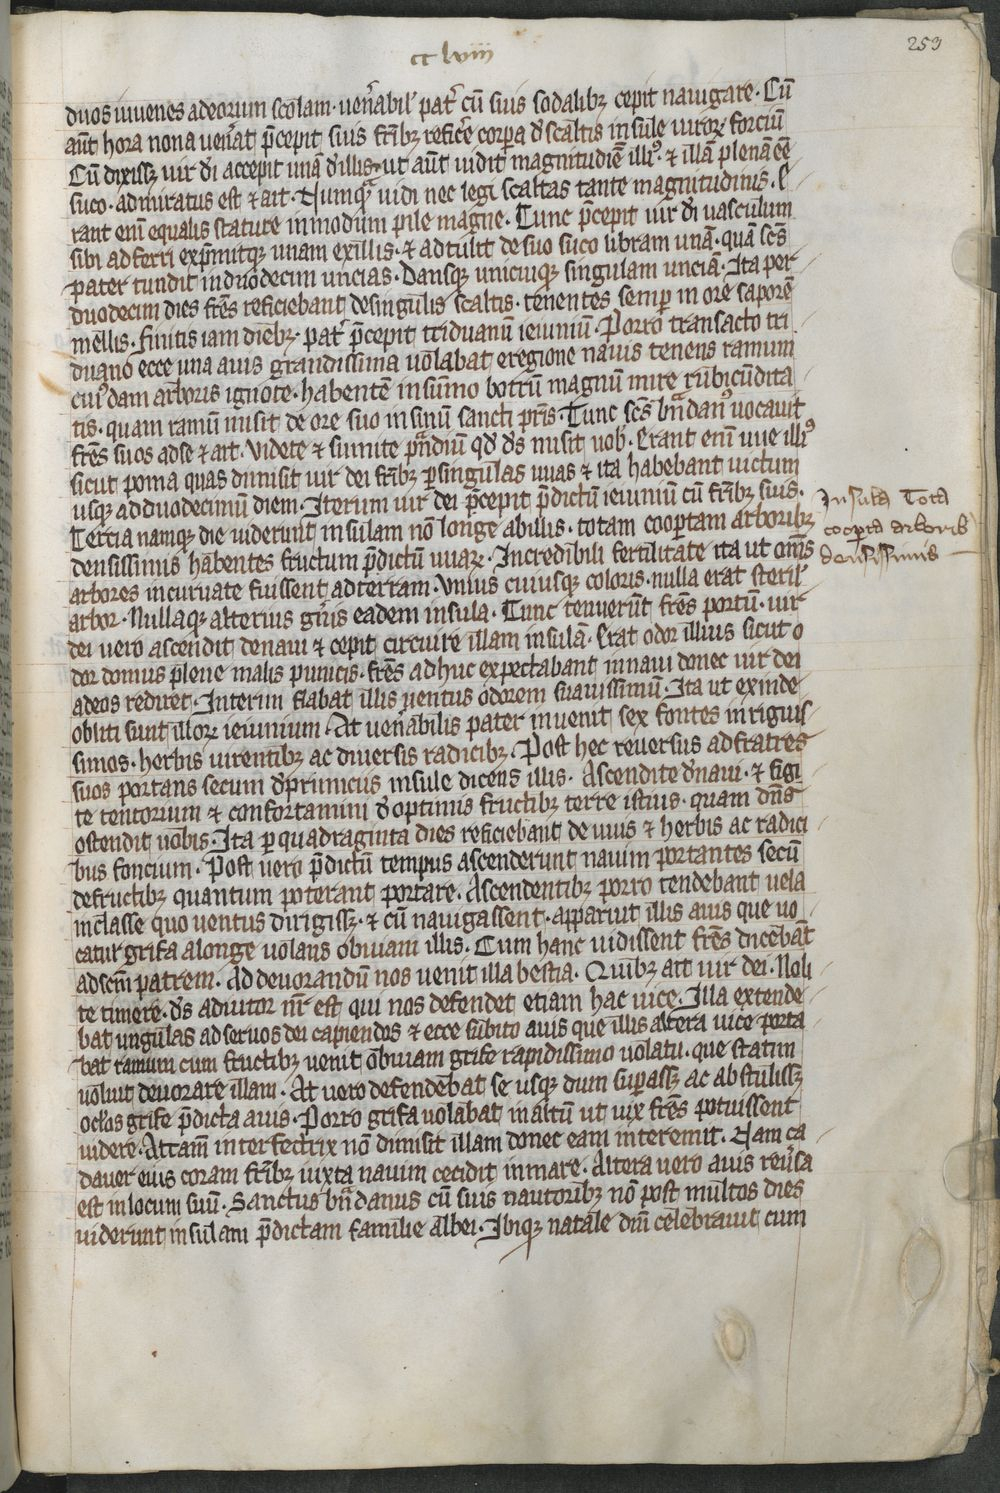 cc lviii
253
duos iuuenes adeorum scolam · ueñabil' pat͛ cū suis sodalibꝫ cepit nauigare · Cū
aūt hora nona ueñat p̄cepit suis fr̄ibꝫ reficͤe corpa d̄ scaltis insule uiroꝝ forciū
Cū dixissꝫ uir d̄i accepit unā d̄illis · ut aūt uidit magnitudinē illi⁹ · ⁊ illā plenā eē
suco · admiratus est ⁊ ait · Nunqᷓ uidi nec legi scaltas tante magnitudinis · E
rant eni᷑ equalis stature inmodum pile magne · Tunc p̄cepit uir d̄i uasculum
sibi adferri exp̄mitqꝫ unam exillis · ⁊ adtulit de suo suco libram unā · quā sc̄s
pater tundit induodecim uncias · Dansqꝫ unicuiqꝫ singulam unciā · Ita per
duodecim dies fr̄es reficiebant desingulis scaltis · tenentes semp̲ in ore saporē
mellis · finitis iam diebꝫ · pat͛ p̄cepit triduanū ieiuniū · Porro transacto tri
duano ecce una auis grandissima uolabat eregione nauis tenens ramum
cui⁹dam arboris ignote · habentē insūmo botrū magnū mire rubicūdita
tis · quam ramū misit de ore suo in sinū sancti pr̄is · Tunc sc̄s bn̄dan⁹ uocauit
fr̄es suos adse ⁊ ait · videte ⁊ sumite pᷓndiū qd̄ d̄s misit uob̄ · Erant eni᷑ uue illi⁹
sicut poma quas diuisit uir dei fr̄ibꝫ p̲singulas uuas ⁊ ita habebant uictum
usqꝫ adduodecimū diem · Iterum uir dei p̄cepit p̄dictū ieiuniū cū fr̄ibꝫ suis ·
Tercia namqꝫ die uiderunt insulam nō longe abillis · totam coop̲tam arboribꝫ
densissimis habentes fructum p̄dictū uuaꝝ · Incredibili fertilitate ita ut om̄s
arbores incuruate fuissent adterram · Vnius cuiusqꝫ coloris · nulla erat steril'
arbor · Nullaqꝫ alterius gn̄is eadem insula · Tunc tenuerūt fr̄es portū · uir
dei uero ascendit denaui ⁊ cepit circuire illam insulā · Erat odor illius sicut o
dor domus plene malis punicis · fr̄es adhuc expectabant innaui donec uir dei
adeos rediret · Interim flabat illis uentus odorem suauissimū · Ita ut exinde
obliti sunt illoꝝ ieiunium · At ueñabilis pater inuenit sex fontes inriguis
simos · herbis uirentibꝫ ac diuersis radicibꝫ · Post hec reuersus adfratres
suos portans secum d̄primicus insule dicens illis · Ascendite d̄naui · ⁊ figi
te tentorium ⁊ confortamini d̄ optimis fructibꝫ terre istius · quam dn̄s
ostendit uobis · Ita p̲ quadraginta dies reficiebant de uuis ⁊ herbis ac radici
bus foncium · Post uero p̄dictū tempus ascenderunt nauim portantes secū
defructibꝫ quantum poterant portare · Ascendentibꝫ porro tendebant uela
inclasse quo uentus dirigissꝫ · ⁊ cū nauigassent · appariut illis auis que uo
catur grifa alonge uolans obuiam illis · Cum hanc uidissent fr̄es dicebāt
adscm̄ patrem · Ad deuorandū nos uenit illa bestia · Quibꝫ ait uir dei · Noli
te timere · d̄s adiutor nr̄ est qui nos defendet etiam hac uice · Illa extende
bat ungulas ad seruos dei capiendos ⁊ ecce subito auis que illis altera uice porta
bat ramum cum fructibꝫ uenit obuiam grife rapidissimo uolatu · que statim
uoluit deuorare illam · At uero defendebat se usqꝫ dum sup̲assꝫ ac abstulissꝫ
oclos grife p̄dicta auis · Porro grifa uolabat inaltū ut uix fr̄es potuissent
videre · Attam̄ interfectrix nō dimisit illam donec eam interemit · Nam ca
dauer eius coram fr̄ibꝫ iuxta nauim cecidit inmare · Altera uero auis reu͛sa
est inlocum suū · Sanctus bn̄danus cū suis nautoribꝫ nō post multos dies
uiderunt insulam p̄dictam familie albei · Ibiqꝫ natale dni᷑ celebrauit cum
Insula Tota
coop̲ta arborib
densissimis